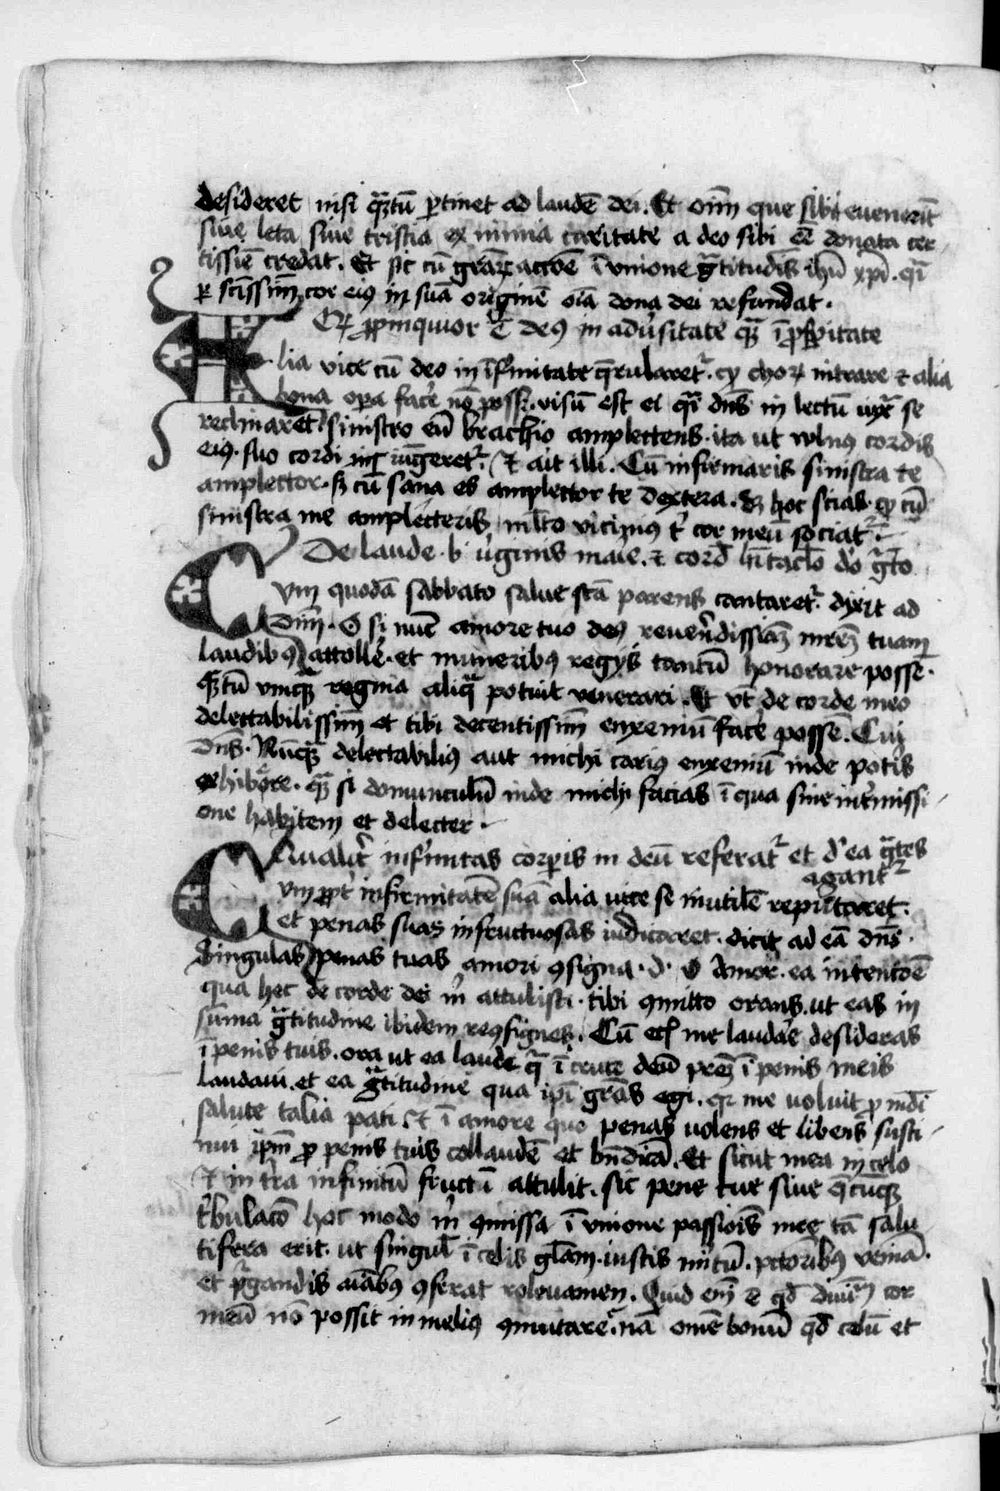 desideret nisi q̄ꝫtū ꝑtinet ad laudē dei. Et oīm que sibi euenerīt
siue leta siue tristia ex nimia caritate a deo sibi eē donata cer
tissīē credat. Et sic cū grāꝝ actiōe ī vnione grātitudīs ihū xpī. q̄ī
ꝑ scīssīm cor eiꝰ in suā originē oīa dona dei refundat.
Qꝛ ꝓpinquior ē deꝰ in adu̾sitate qꝫ ī ꝓsꝑitate
Alia vice cū deo in īfirmitate q̄rularet᷑. cp chorꝫ intrare ⁊ alia
bona oꝑa face̾ nō possꝫ. visū est ei q̄ī dn̄s in lectū iuxͣ se
reclinaret sinistro eū brachio amplettens. ita ut vulnꝰ cordis
eiꝰ suo cordi iūgeret᷑. Et ait illi. Cū infirmaris sinistra te
amplector. sꝫ cū sana es amplector te dextera. Sꝫ hoc scias. qꝫ cū
sinistra me amplecteris ml̄to viciniꝰ t̾ cor meū sociat᷑.
De laude. b̄ v̾ginis marie. ⁊ cordꝭ hītac̄lo dō grāto
Cum quodā sabbato salue sc̄ā parens cantaret᷑. dixit ad
Dn̄m. O si nūc amore tuo deꝰ reuerēdissiāꝫ mr̄eꝫ tuam
laudibꝰ attolle̾. et muneribꝰ regijs tantū honorare posse.
q̄ꝫtū vmqꝫ regina aliqͣ potuit venerari. Et vt de corde meo
delectabilissīm et tibi decentissīm enxeniū face̾ possē. Cui
Dn̄s. Nūcqꝫ delectabiliꝰ aut michi cariꝰ enxeniū inde pot̾is
exhibere. qꝫ si domunculā inde michi facias ī qua sine int̾missi
one habitem et delecter.
Qualit̾ infirmitas corꝑis in deū referat᷑ et d̾ ea grātes
agant᷑
Cum ꝓpt̾ infirmitatē suā alia vice se inutilē reputaret.
et penas suas infructuosas iudicaret. dicit ad eā dn̄s.
Singulas penas tuas amori ꝯsigna. d. O Amor. ea intentōē
qua hec de corde dei m̾ attulisti. tibi ꝯmitto orans. ut eas in
sūma grātitudine ibidem reꝯsignes. Cū et me laudare desideras
ī penis tuis. ora ut ea laude qͣ ī cruce deū pr̄eꝫ ī penis meis
laudaui. et ea grātitudine qua ip̄i grās egi. qꝛ me voluit ꝓ mūdi
salute talia pati. Et ī amore quo penas volens et libens susti
nui ip̄m ꝓ penis tuis collaudē et bn̄dicā. Et sicut mea in celo
et in t̾ra infinitū fructū attulit. sic pene tue siue q̄cūqꝫ
t̾bulacō hoc modo m̾ ꝯmissa ī vnione passiōīs mee tā salu
tifera erit. ut singul̄ ī celis gl̄am. iustis m̾itū. pctōribꝰ veniā.
et pͥgandis aīabꝰ ꝯferat releuamen. Quid em̄ ē qd̄ diuīm cor
meū nō possit in meliꝰ ꝯmutare. nā omē bonū qd̄ celū et